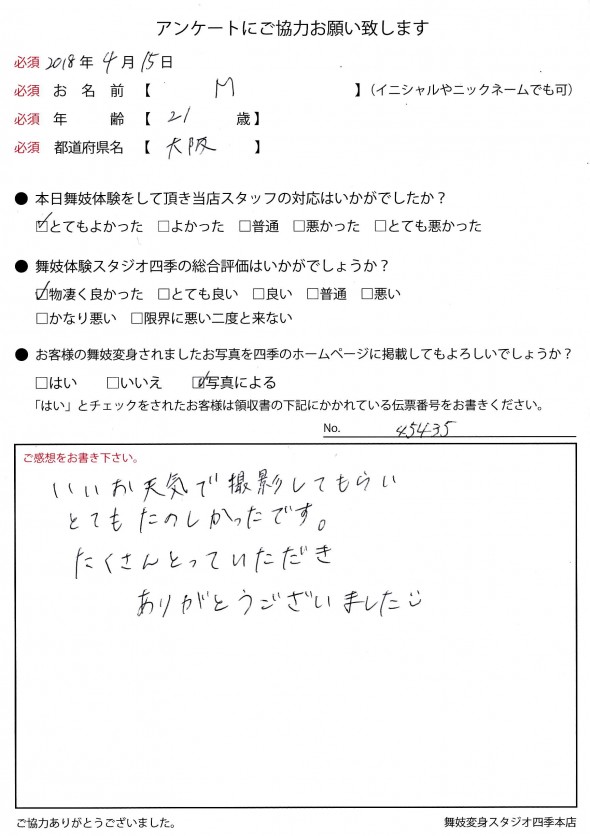 アンケートにご協力お願い致します
必須 2018年 4月 15日
必須 お名前【 M 】（イニシャルやニックネームでも可）
必須 年齢【 21 歳】
必須 都道府県名【 大阪 】
● 本日舞妓体験をして頂き当店スタッフの対応はいかがでしたか？
☑とてもよかった □よかった □普通 □悪かった □とても悪かった
● 舞妓体験スタジオ四季の総合評価はいかがでしょうか？
☑物凄く良かった □とても良い □良い □普通 □悪い
□かなり悪い □限界に悪い二度と来ない
● お客様の舞妓変身されましたお写真を四季のホームページに掲載してもよろしいでしょうか？
□はい □いいえ ☑写真による
「はい」とチェックをされたお客様は領収書の下記にかかれている伝票番号をお書きください。
No. 45435
ご感想をお書き下さい。
いいお天気で撮影してもらい
とてもたのしかったです。
たくさんとっていただき
ありがとうございました☺
ご協力ありがとうございました。
舞妓変身スタジオ四季本店